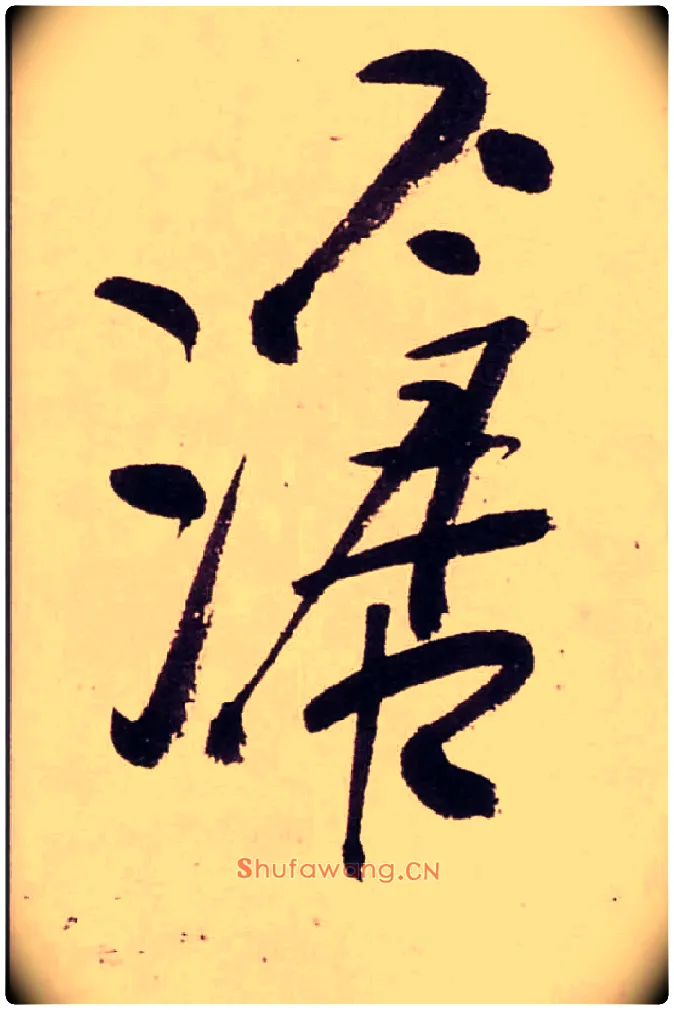 滄
Shufawang.CN